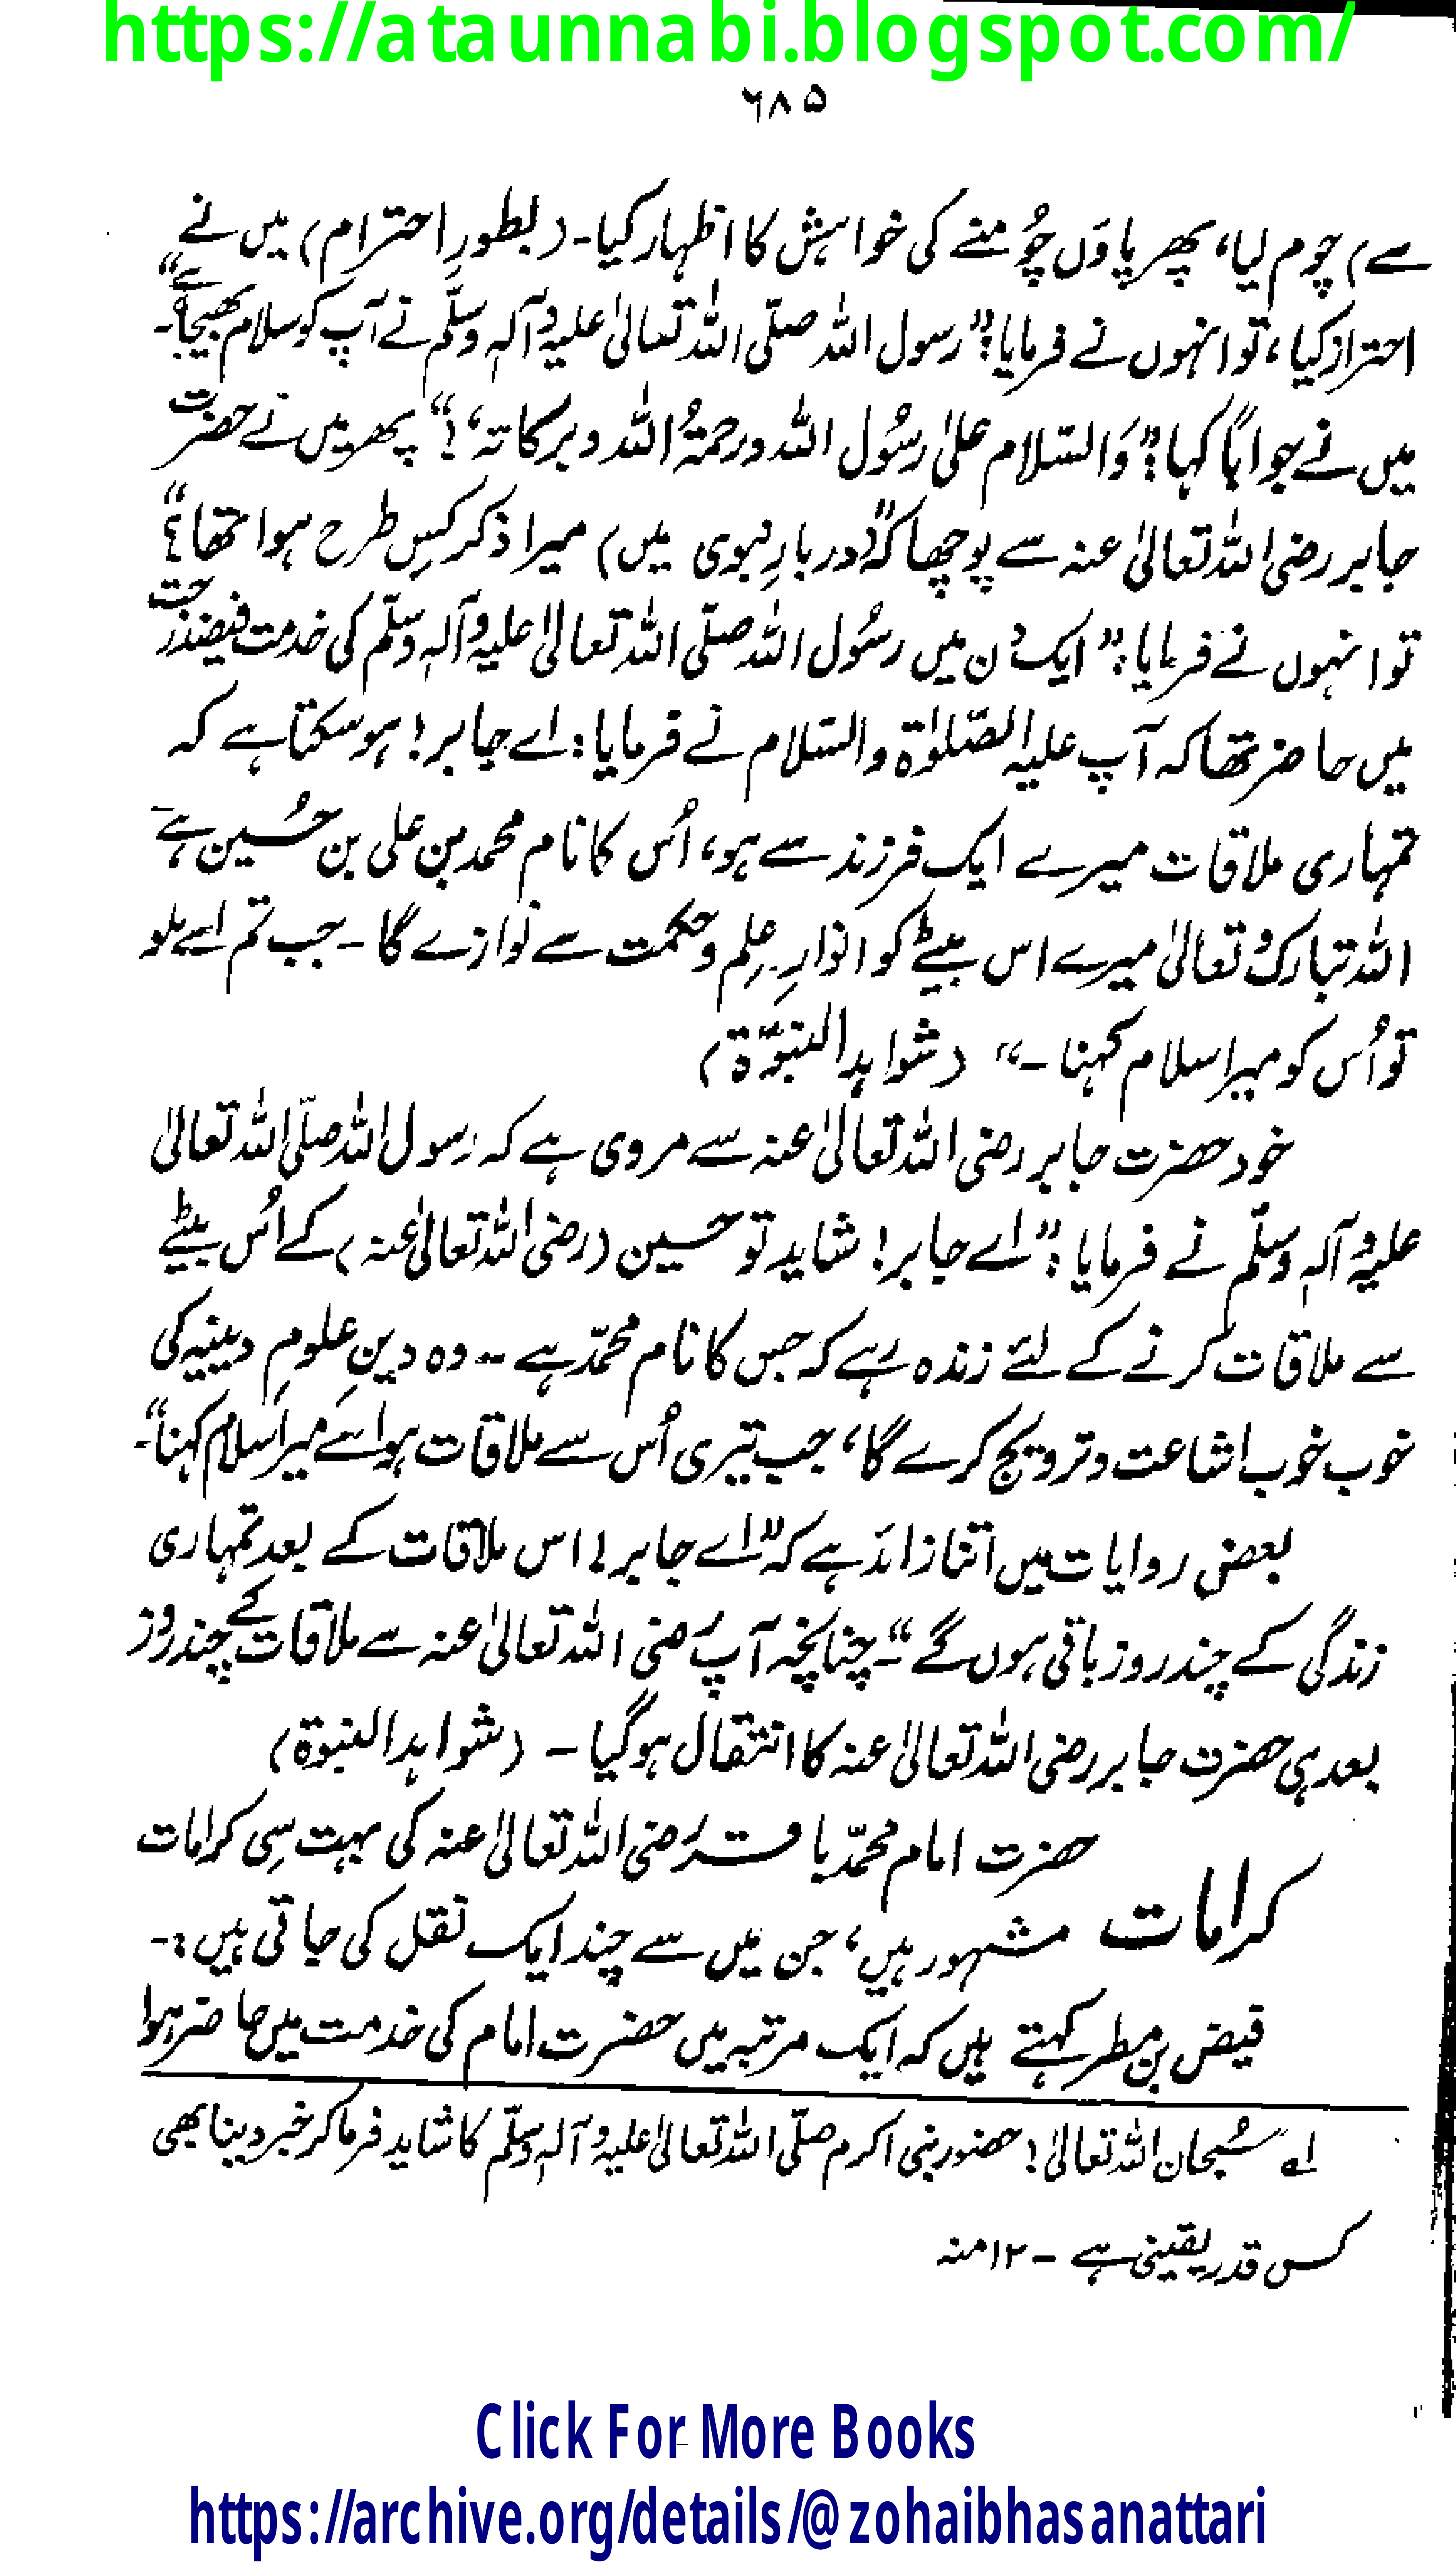 https://ataunnabi.blogspot.com/
۶۸۵
سے) چوم لیا، پھر پاؤں چُومنے کی خواہش کا اظہار کیا۔ (بطورِ احترام) میں نے
احتراز کیا، تو انہوں نے فرمایا: ”رسول اللہ صلّی اللہ تعالیٰ علیہ وآلہٖ وسلّم نے آپ کو سلام بھیجا ہے“۔
میں نے جواباً کہا: ”وَالسّلام علیٰ رسُول اللہ ورحمۃُ اللہ وبرکاتہ،!“ پھر میں نے حضرت
جابر رضی اللہ تعالیٰ عنہ سے پوچھا کہ ”(دربارِ نبوی میں) میرا ذکر کس طرح ہوا تھا؟“
تو انہوں نے فرمایا: ”ایک دن میں رسُول اللہ صلّی اللہ تعالیٰ علیہ وآلہٖ وسلّم کی خدمت فیضدرجت
میں حاضر تھا کہ آپ علیہ الصّلوٰۃ والسّلام نے فرمایا: اے جابر! ہو سکتا ہے کہ
تمہاری ملاقات میرے ایک فرزند سے ہو، اُس کا نام محمد بن علی بن حُسین ہے
اللہ تبارک و تعالیٰ میرے اس بیٹے کو انوارِ علم و حکمت سے نوازے گا ۔ جب تم اسے ملو
تو اُس کو میرا سلام کہنا ۔“ (شواہد النبوّۃ)
خود حضرت جابر رضی اللہ تعالیٰ عنہ سے مروی ہے کہ رسول اللہ صلّی اللہ تعالیٰ
علیہ وآلہٖ وسلّم نے فرمایا: ”اے جابر! شاید تو حسین (رضی اللہ تعالیٰ عنہ) کے اُس بیٹے
سے ملاقات کرنے کے لئے زندہ رہے کہ جس کا نام محمّد ہے ۔ وہ دینِ علومِ دینیہ کی
خوب خوب اشاعت و ترویج کرے گا، جب تیری اُس سے ملاقات ہو اسے میرا سلام کہنا“۔
بعض روایات میں اتنا زائد ہے کہ ”اے جابر! اس ملاقات کے بعد تمہاری
زندگی کے چند روز باقی ہوں گے“۔ چنانچہ آپ رضی اللہ تعالیٰ عنہ سے ملاقات کے چند روز
بعد ہی حضرت جابر رضی اللہ تعالیٰ عنہ کا انتقال ہو گیا ۔ (شواہد النبوۃ)
حضرت امام محمّد باقر رضی اللہ تعالیٰ عنہ کی بہت سِی کرامات
کرامات مشہور ہیں، جن میں سے چند ایک نقل کی جاتی ہیں :-
فیض بن مطر کہتے ہیں کہ ایک مرتبہ میں حضرت امام کی خدمت میں حاضر ہوا
لے سُبحان اللہ تعالیٰ! حضور نبی اکرم صلّی اللہ تعالیٰ علیہ وآلہٖ وسلّم کا شاید فرما کر خبر دینا بھی
کس قدر یقینی ہے ۔ ۱۲ منہ
Click For More Books
https://archive.org/details/@zohaibhasanattari